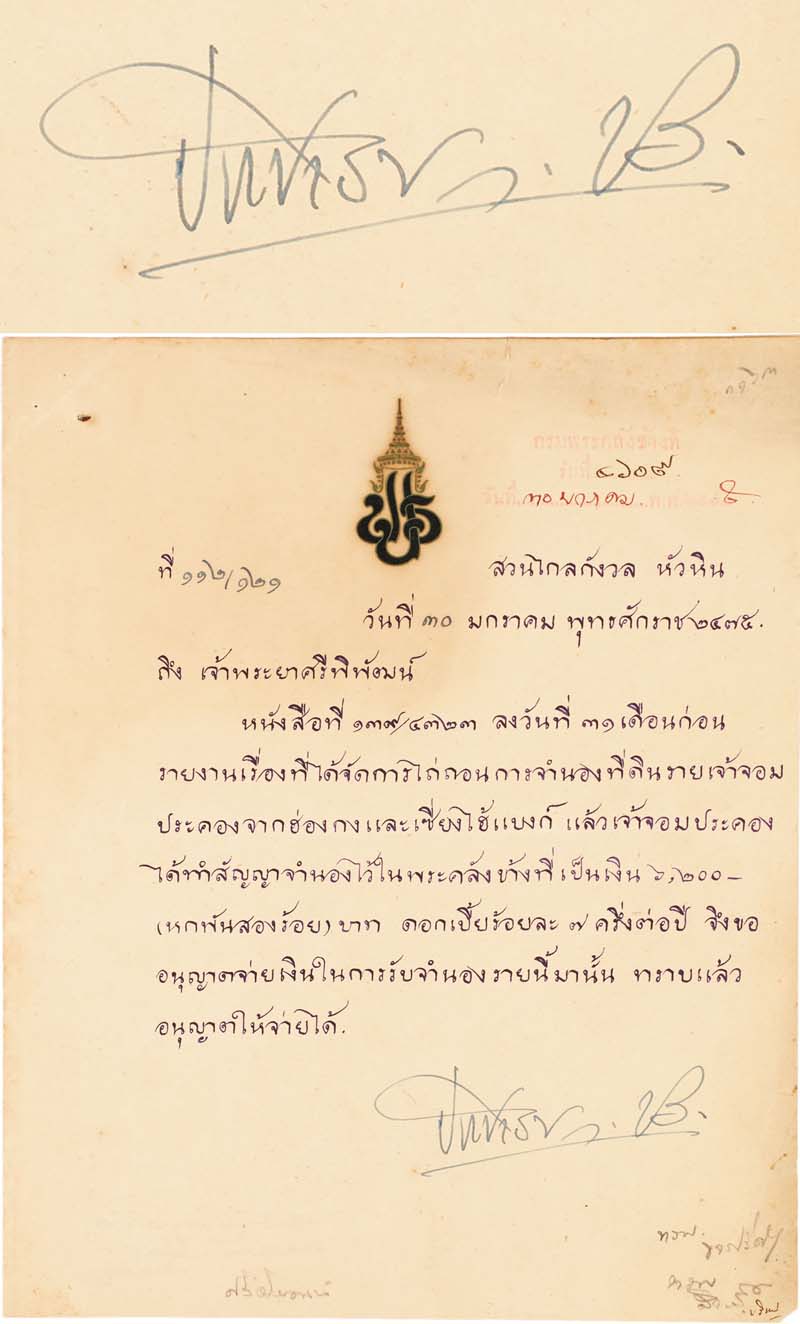 ประชาธิปก. ปร.
๓๐ มกราคม
ที่ ๑๑๒/๑๒๑
สวนไกลกังวล หัวหิน
วันที่ ๓๐ มกราคม พุทธศักราช ๒๔๗๕.
ถึง เจ้าพระยาศรีพิพัฒน์
หนังสือที่ ๑๓๙/๔๗๒๓ ลงวันที่ ๓๑ เดือนก่อน
รายงานเรื่องที่ได้จัดการไถ่ถอนการจำนองที่ดินรายเจ้าจอม
ประคองจากฮ่องกงและเซี่ยงไฮ้แบงก์ แล้วเจ้าจอมประคอง
ได้ทำสัญญาจำนองไว้ในพระคลังข้างที่เป็นเงิน ๖,๒๐๐ –
(หกพันสองร้อย) บาท ดอกเบี้ยร้อยละ ๗ ครึ่งต่อปี จึงขอ
อนุญาตจ่ายเงินในการรับจำนองรายนี้มานั้น ทราบแล้ว
อนุญาตให้จ่ายได้.
ประชาธิปก. ปร.